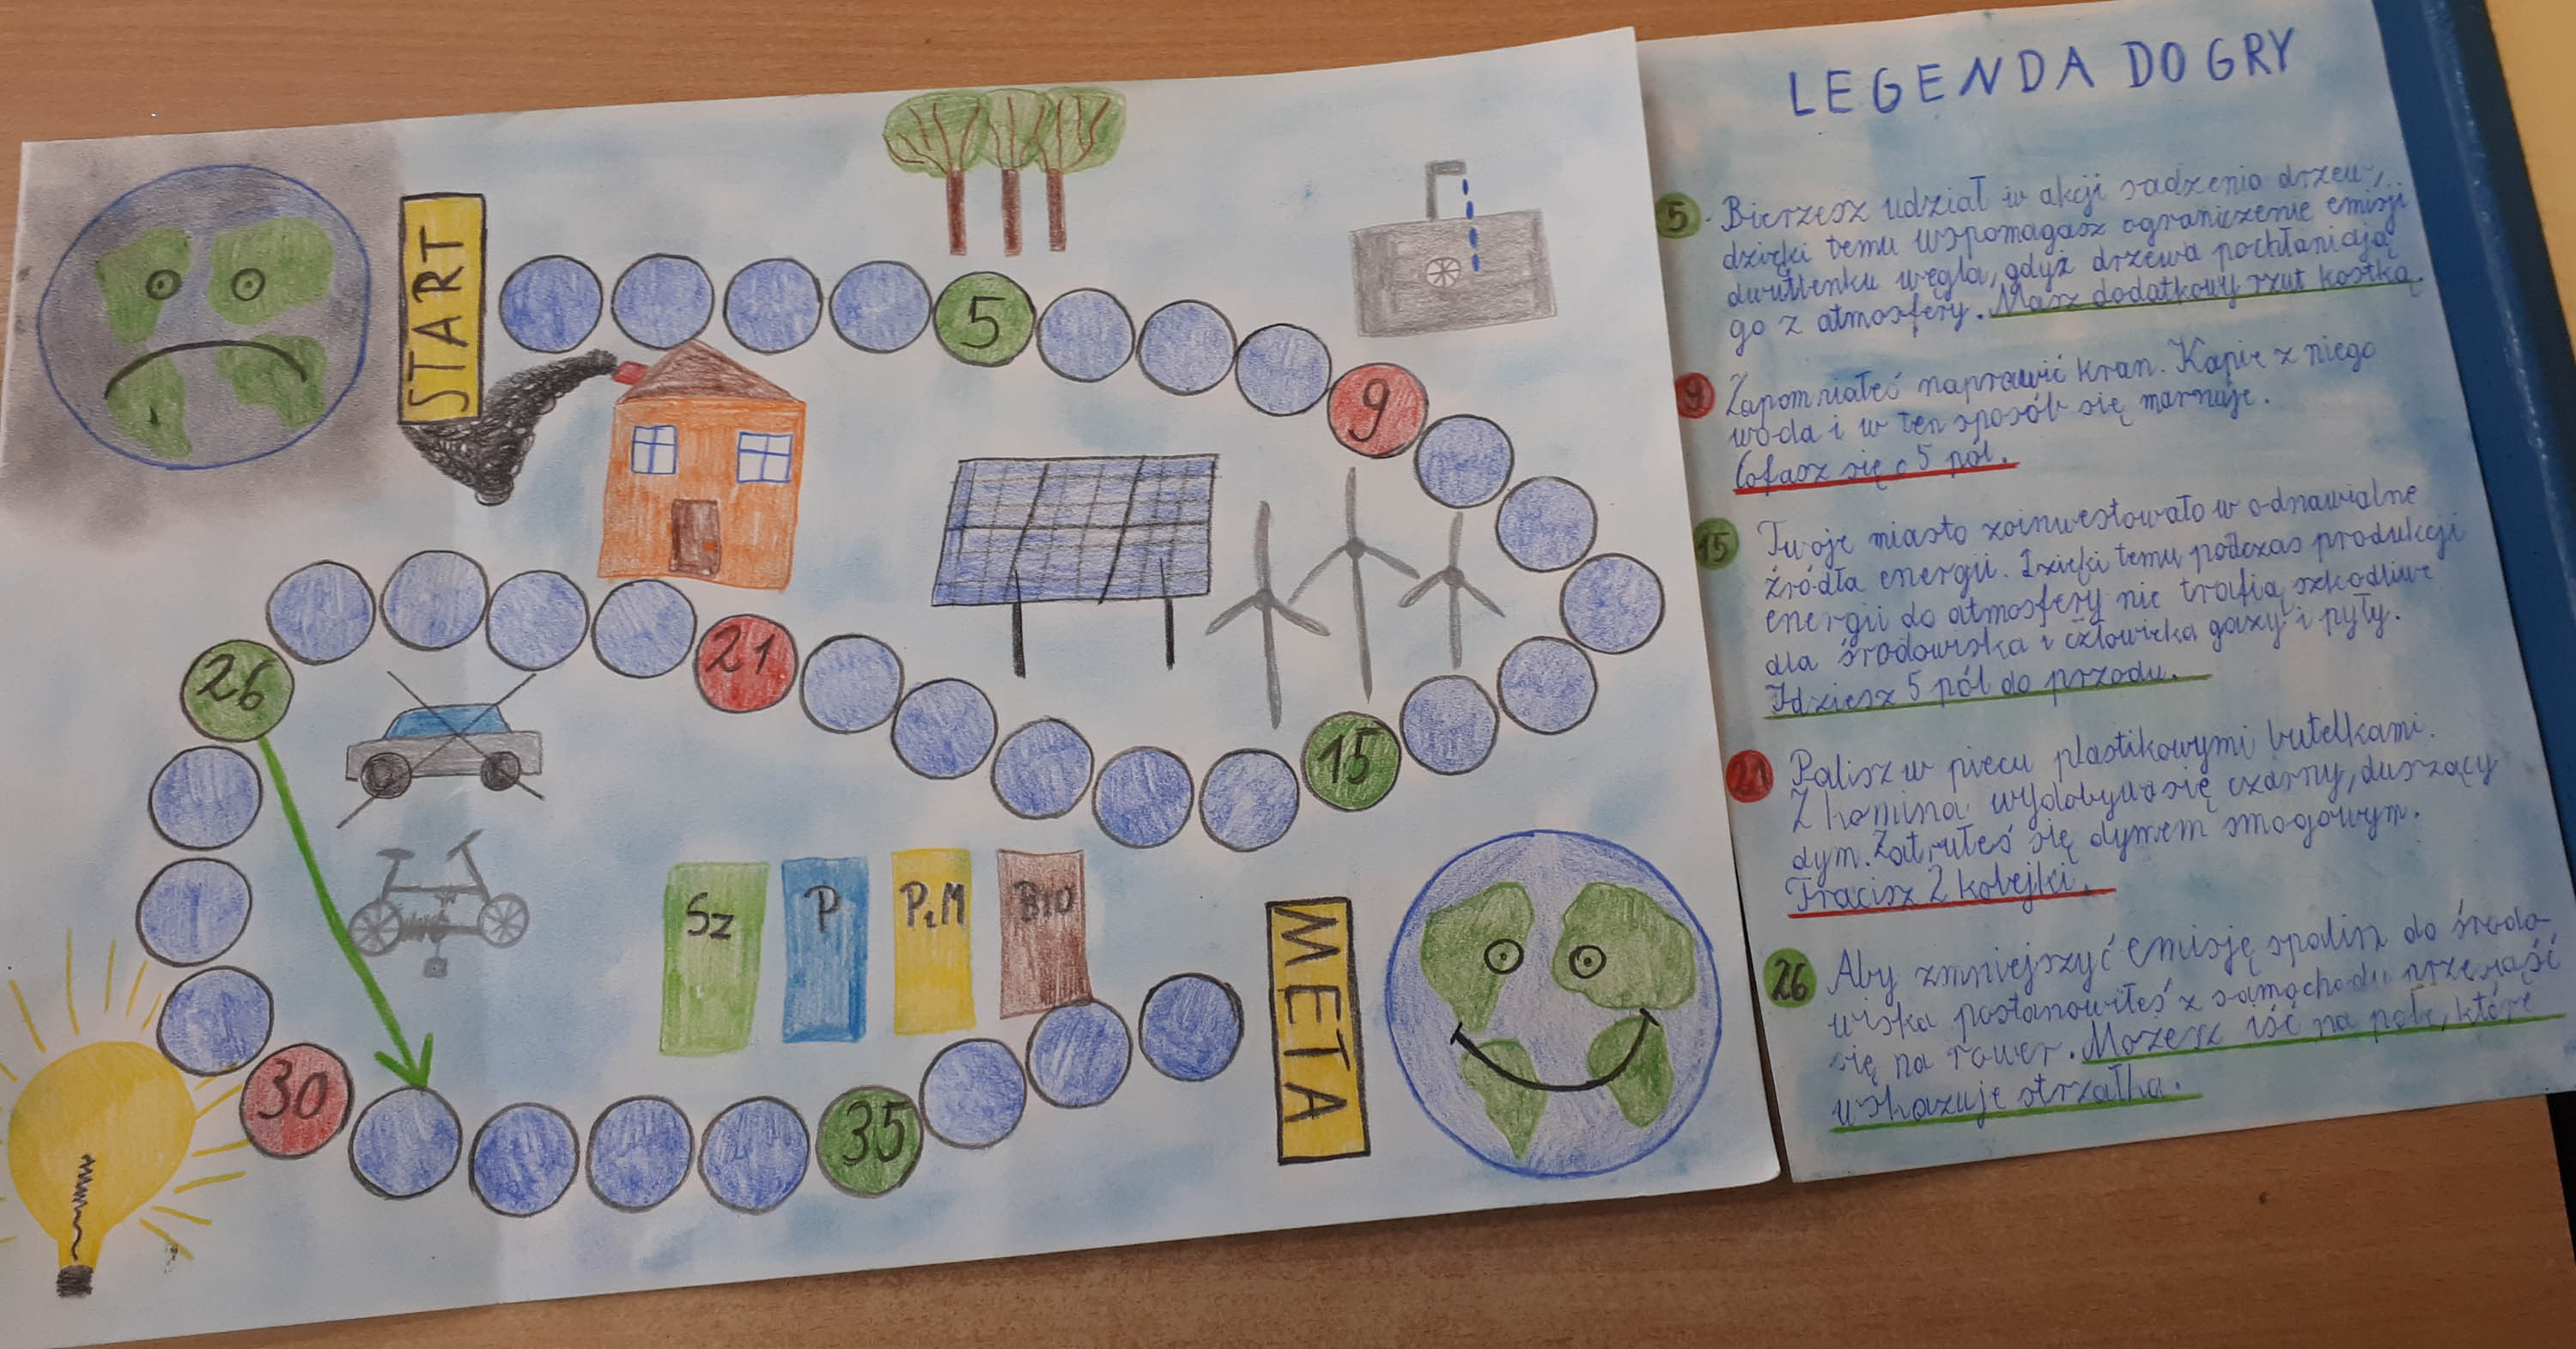 START
5
9
15
21
26
30
35
Sz
P
P i M
BIO
META
LEGENDA DO GRY
5 Bierzesz udział w akcji sadzenia drzew,
dzięki temu wspomagasz ograniczenie emisji
dwutlenku węgla, gdyż drzewa pochłaniają
go z atmosfery. Masz dodatkowy rzut kostką.
9 Zapomniałeś naprawić kran. Kapie z niego
woda i w ten sposób się marnuje.
Cofasz się o 5 pól.
15 Twoje miasto zainwestowało w odnawialne
źródła energii. Dzięki temu podczas produkcji
energii do atmosfery nie trafią szkodliwe
dla środowiska i człowieka gazy i pyły.
Idziesz 5 pól do przodu.
21 Palisz w piecu plastikowymi butelkami.
Z komina wydobywa się czarny, duszący
dym. Zatrułeś się dymem smogowym.
Tracisz 2 kolejki.
26 Aby zmniejszyć emisję spalin do środo-
wiska postanowiłeś z samochodu przesiąść
się na rower. Możesz iść na pole, które
wskazuje strzałka.